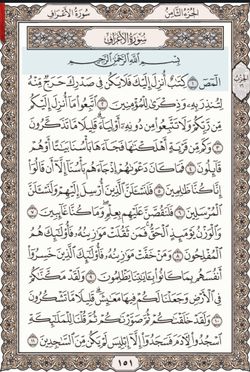 سُورَةُ الأَعْرَافِ الجُزْءُ الثَّامِنُ
سُورَةُ الأَعْرَافِ
بِسْمِ اللَّهِ الرَّحْمَٰنِ الرَّحِيمِ
الٓمٓصٓ ١ كِتَٰبٌ أُنزِلَ إِلَيْكَ فَلَا يَكُن فِي صَدْرِكَ حَرَجٌ مِّنْهُ
لِتُنذِرَ بِهِۦ وَذِكْرَىٰ لِلْمُؤْمِنِينَ ٢ ٱتَّبِعُوا۟ مَآ أُنزِلَ إِلَيْكُم
مِّن رَّبِّكُمْ وَلَا تَتَّبِعُوا۟ مِن دُونِهِۦٓ أَوْلِيَآءَ ۗ قَلِيلًا مَّا تَذَكَّرُونَ
٣ وَكَم مِّن قَرْيَةٍ أَهْلَكْنَٰهَا فَجَآءَهَا بَأْسُنَا بَيَٰتًا أَوْ هُمْ
قَآئِلُونَ ٤ فَمَا كَانَ دَعْوَىٰهُمْ إِذْ جَآءَهُم بَأْسُنَآ إِلَّآ أَن قَالُوٓا۟
إِنَّا كُنَّا ظَٰلِمِينَ ٥ فَلَنَسْـَٔلَنَّ ٱلَّذِينَ أُرْسِلَ إِلَيْهِمْ وَلَنَسْـَٔلَنَّ
ٱلْمُرْسَلِينَ ٦ فَلَنَقُصَّنَّ عَلَيْهِم بِعِلْمٍ ۖ وَمَا كُنَّا غَآئِبِينَ ٧
وَٱلْوَزْنُ يَوْمَئِذٍ ٱلْحَقُّ ۚ فَمَن ثَقُلَتْ مَوَٰزِينُهُۥ فَأُو۟لَٰٓئِكَ هُمُ
ٱلْمُفْلِحُونَ ٨ وَمَنْ خَفَّتْ مَوَٰزِينُهُۥ فَأُو۟لَٰٓئِكَ ٱلَّذِينَ خَسِرُوٓا۟
أَنفُسَهُم بِمَا كَانُوا۟ بِـَٔايَٰتِنَا يَظْلِمُونَ ٩ وَلَقَدْ مَكَّنَّٰكُمْ
فِي ٱلْأَرْضِ وَجَعَلْنَا لَكُمْ فِيهَا مَعَٰيِشَ ۗ قَلِيلًا مَّا تَشْكُرُونَ
١٠ وَلَقَدْ خَلَقْنَٰكُمْ ثُمَّ صَوَّرْنَٰكُمْ ثُمَّ قُلْنَا لِلْمَلَٰٓئِكَةِ
ٱسْجُدُوا۟ لِـَٔادَمَ فَسَجَدُوٓا۟ إِلَّآ إِبْلِيسَ لَمْ يَكُن مِّنَ ٱلسَّٰجِدِينَ ١١
١٥١